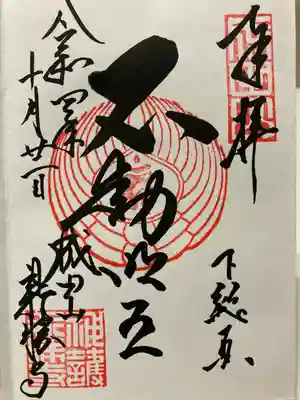 奉拝
下総
不動明王
成田山
新勝寺
令和四年
十月廿一日